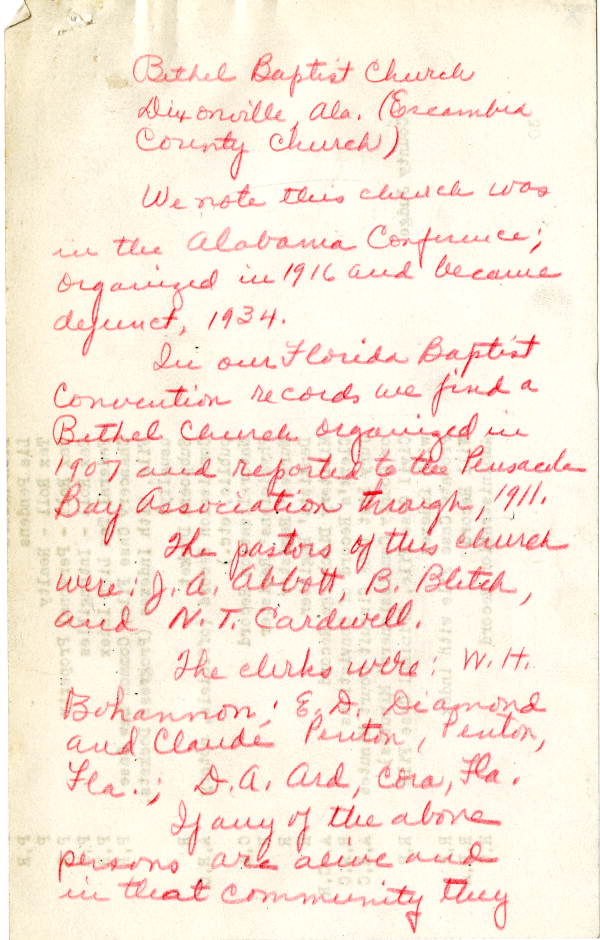 Bethel Baptist Church
Dixonville, Ala. (Escambia
County Church)
We note this church was
in the Alabama Conference;
organized in 1916 and became
defunct, 1934.
In our Florida Baptist
Convention records we find a
Bethel Church organized in
1907 and reported to the Pensacola
Bay Association through, 1911.
The pastors of this church
were: J. A. Abbott, B. Blitch,
and N. T. Cardwell.
The clerks were: W. H.
Bohannon; E. D. Diamond
and Claude Penton, Penton,
Fla.; D. A. Ard, Cora, Fla.
If any of the above
persons are alive and
in that community they